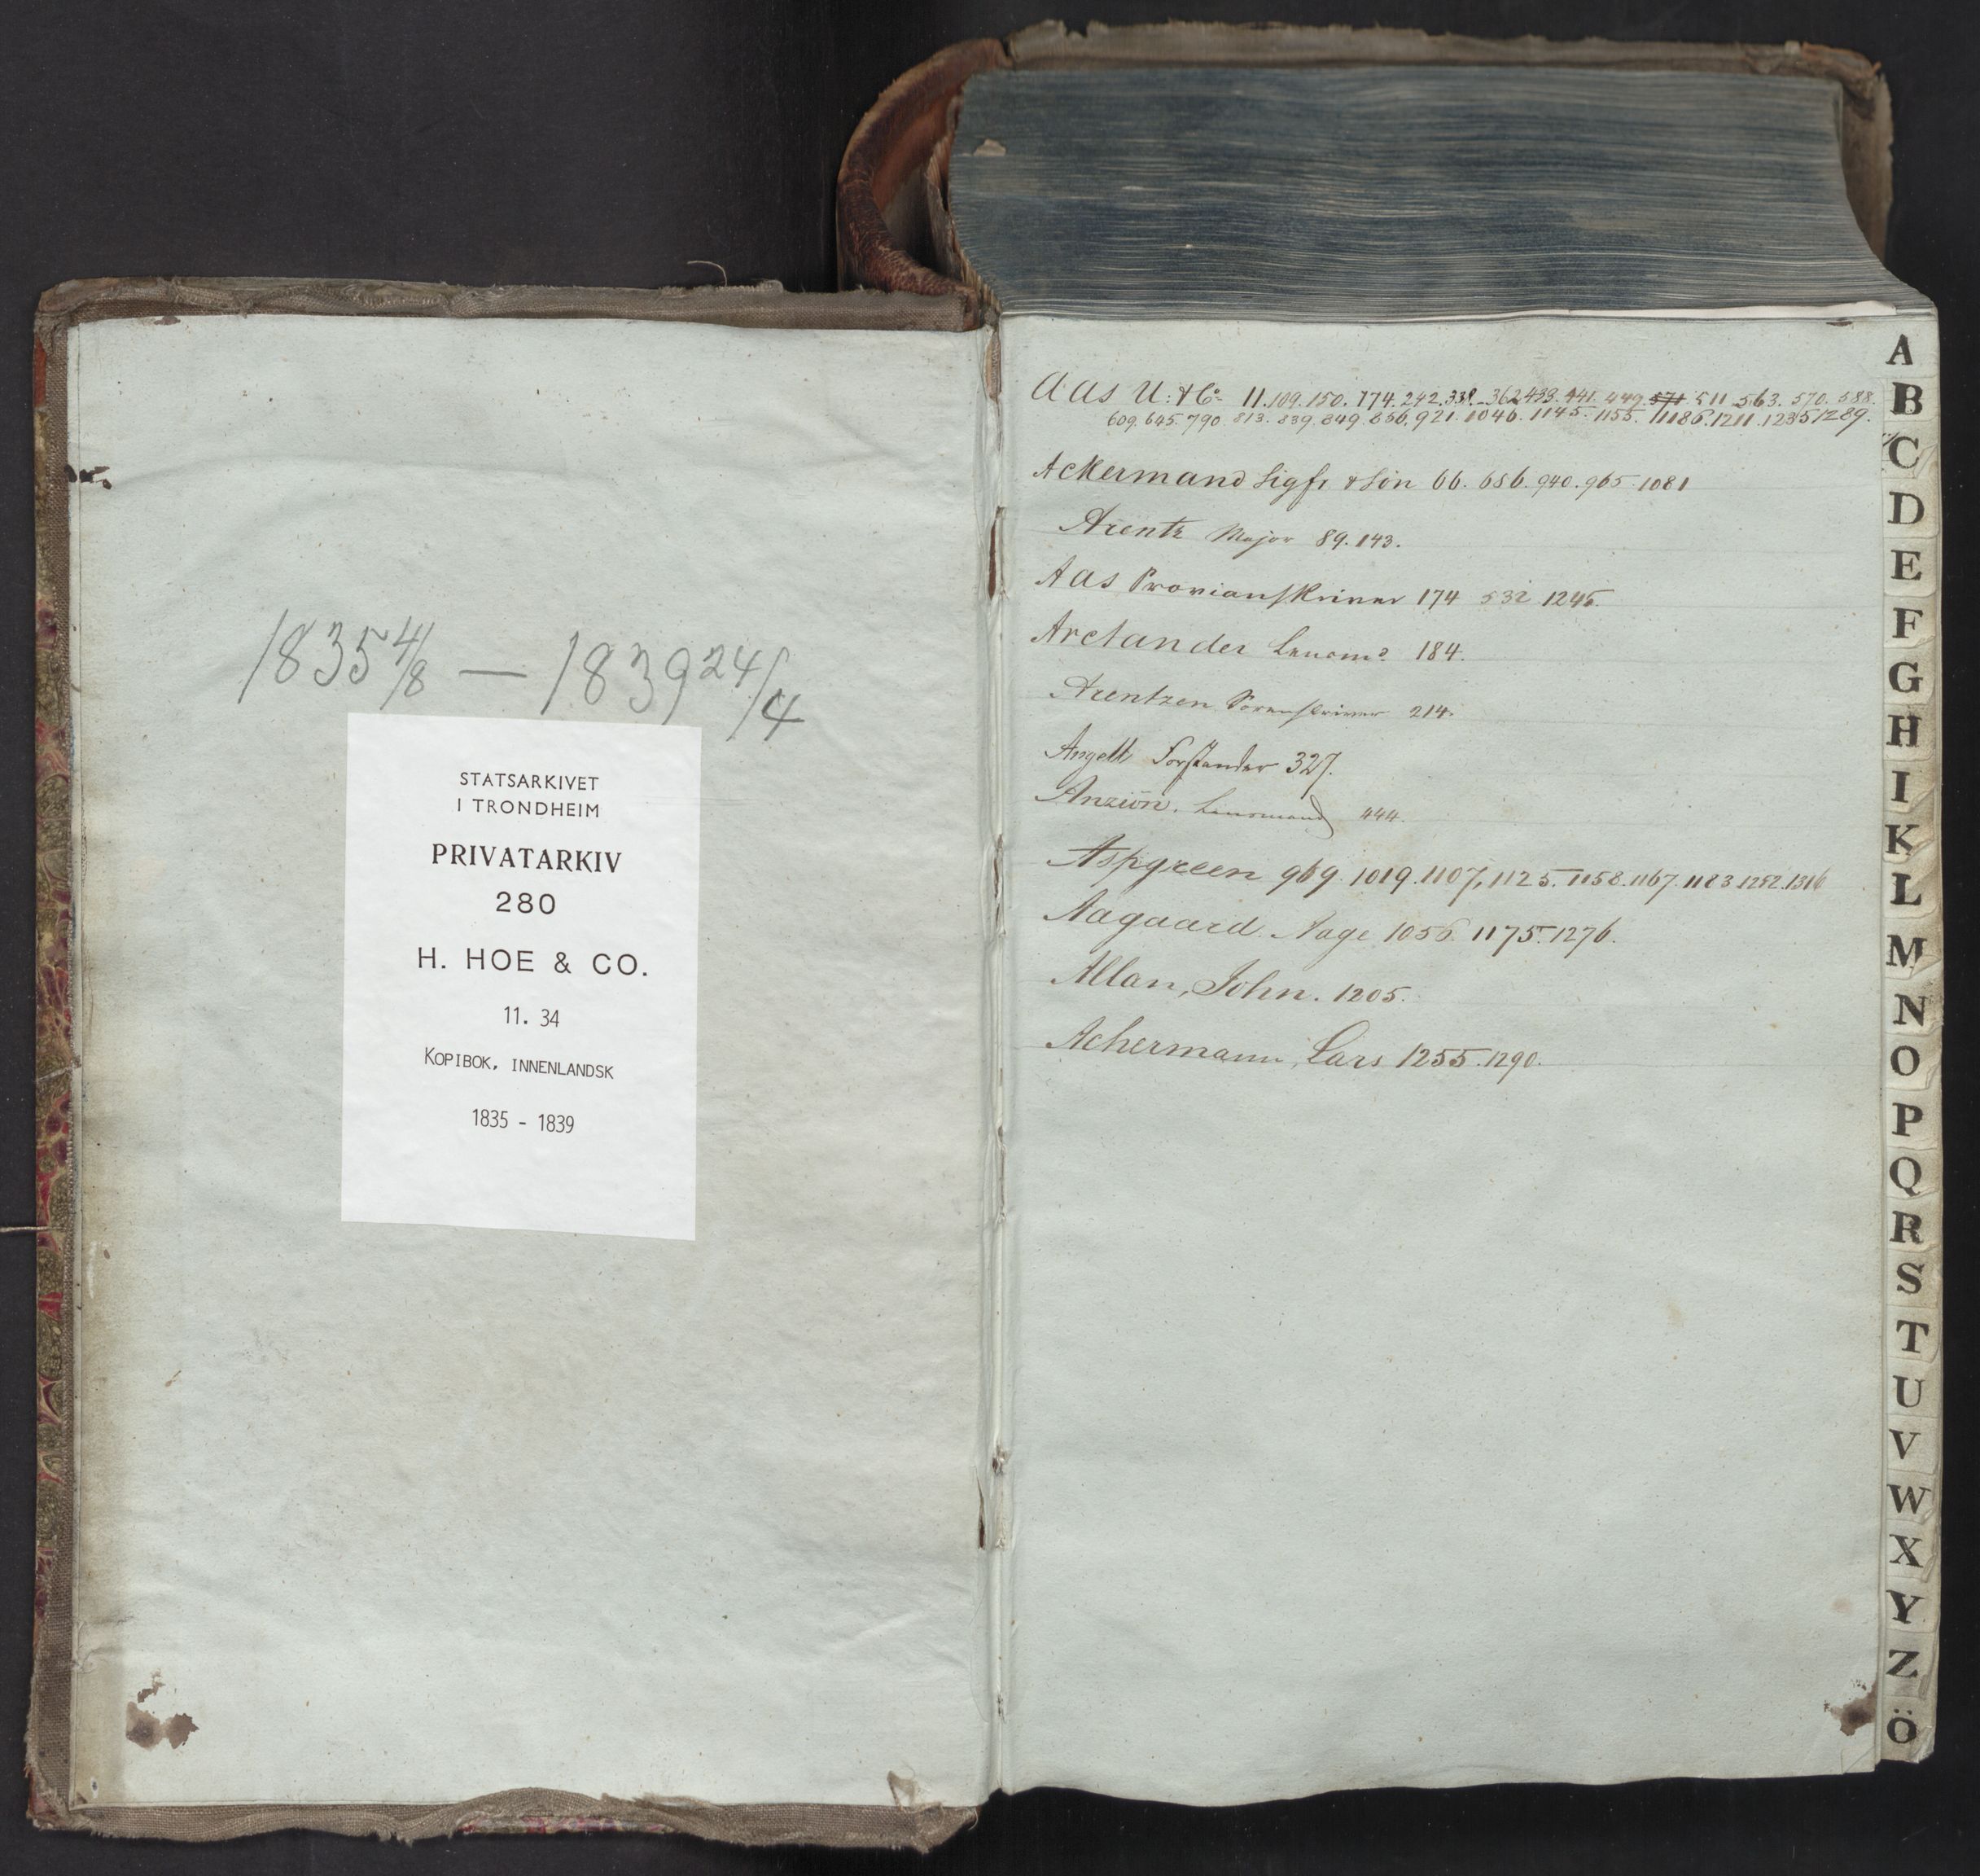 1835 4/8 — 1839 24/4
STATSARKIVET
I TRONDHEIM
PRIVATARKIV
280
H. HOE & CO.
11. 34
KOPIBOK, INNENLANDSK
1835 - 1839
Aas U: & Co 11. 109. 150. 174. 242. 338. 362 433. 441. 449. 571 511 563. 570. 588.
609. 645. 790. 813. 839. 849. 856. 921. 1046. 1145. 1155. 1186. 1211. 1235 1289.
Ackermand Sigfr & Sön 66. 656. 940. 965. 1081
Arentz Major 89. 143.
Aas Provianskriver 174 532 1245.
Arctander Lensmd 184.
Arentzen Sorenskriver 214.
Angell Forstander 327.
Lensmand 444.
Aspgreen 969. 1019. 1107, 1125. 1158. 1167. 1183. 1282. 1316
Aagaard. Aage 1056. 1175. 1276.
Allan, John. 1205.
Achermann, Lars 1255. 1290.
A
B
C
D
E
F
G
H
I
K
L
M
N
O
P
Q
R
S
T
U
V
W
X
Y
Z
Ö